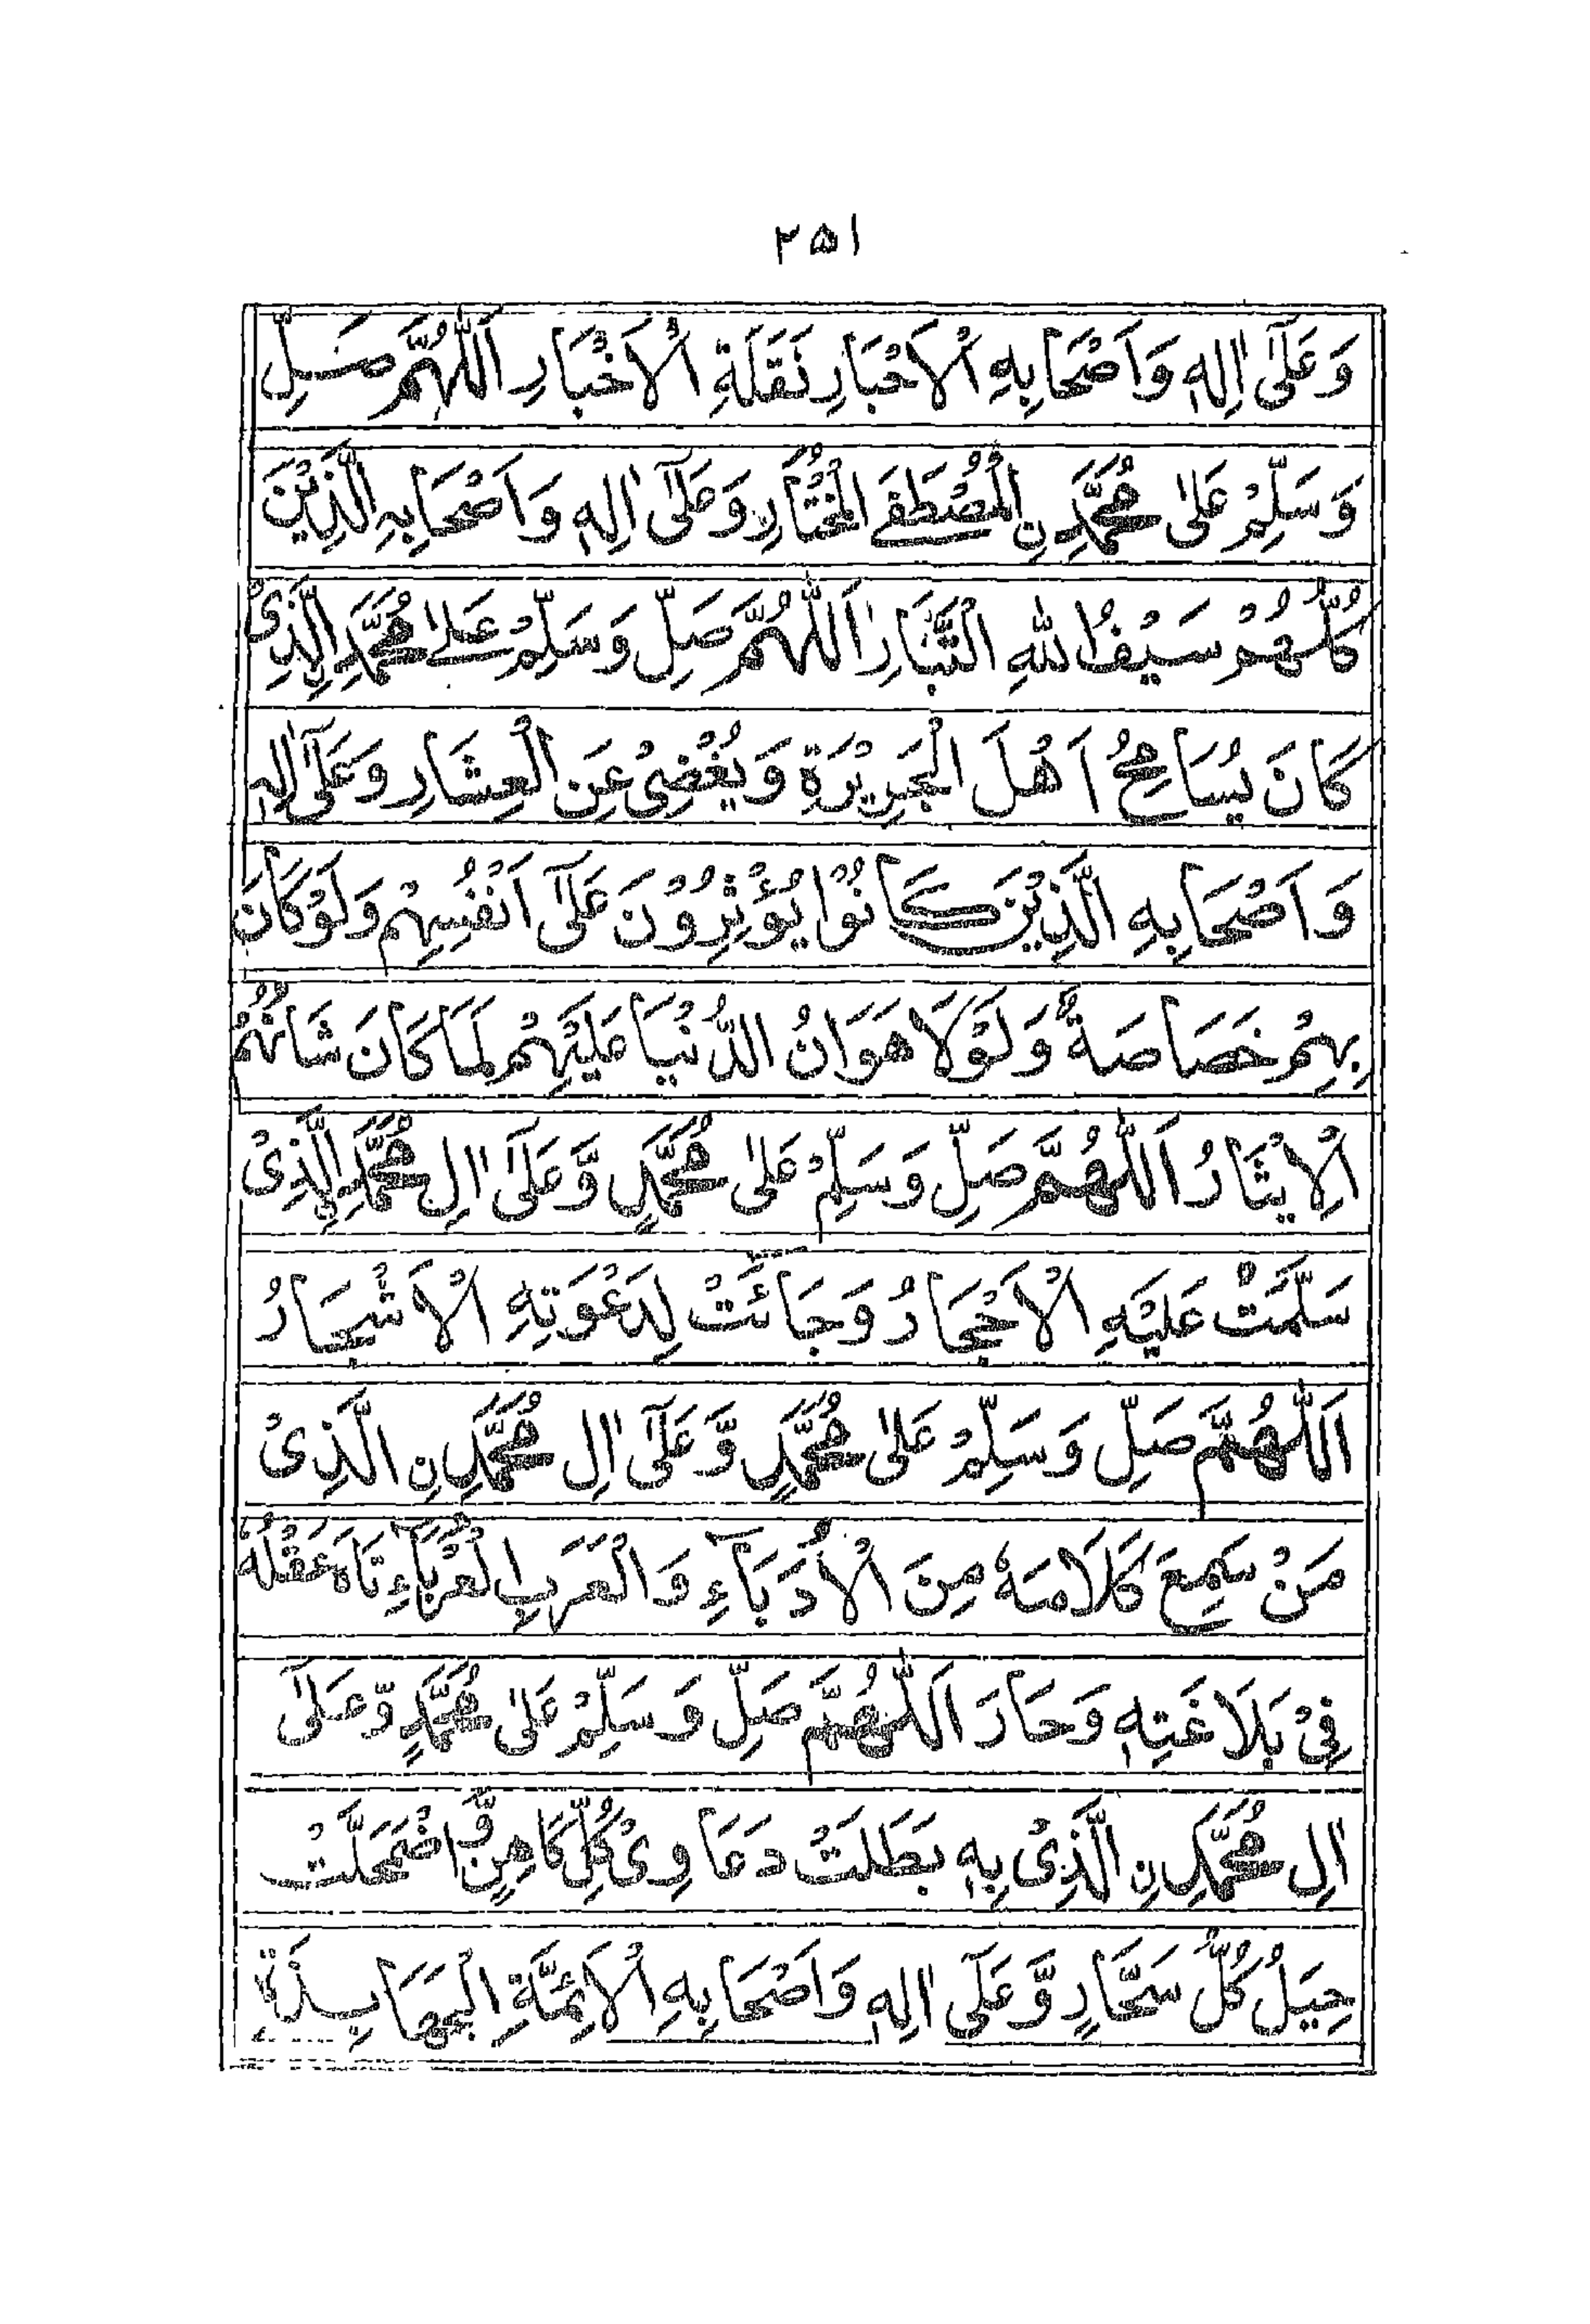 ۲۵۱
وَعَلٰٓى اٰلِهٖ وَاَصْحَابِهِ الْاَحْبَارِ نَقَلَةِ الْاَخْبَارِ اَللّٰهُمَّ صَلِّ
وَسَلِّمْ عَلٰى مُحَمَّدِ نِ الْمُصْطَفَى الْمُخْتَارِ وَعَلٰٓى اٰلِهٖ وَاَصْحَابِهِ الَّذِيْنَ
كُلُّهُمْ سَيْفُ اللهِ الْتَبَّارِ اَللّٰهُمَّ صَلِّ وَسَلِّمْ عَلٰى مُحَمَّدِ نِ الَّذِىْ
كَانَ يُسَامِحُ اَهْلَ الْجَرِيْرَةِ وَيُغْضِىْ عَنِ الْعِثَارِ وَعَلٰٓى اٰلِهٖ
وَاَصْحَابِهِ الَّذِيْنَ كَانُوْا يُؤْثِرُوْنَ عَلٰٓى اَنْفُسِهِمْ وَلَوْكَانَ
بِهِمْ خَصَاصَةٌ وَّلَوْلَا هَوَانُ الدُّنْيَا عَلَيْهِمْ لَمَا كَانَ شَانُهُمُ
الْاِيْثَارُ اَللّٰهُمَّ صَلِّ وَسَلِّمْ عَلٰى مُحَمَّدٍ وَّعَلٰٓى اٰلِ مُحَمَّدِ نِ الَّذِىْ
سَلَّمَتْ عَلَيْهِ الْاَحْجَارُ وَجَائَتْ لِدَعْوَتِهِ الْاَشْجَارُ
اَللّٰهُمَّ صَلِّ وَسَلِّمْ عَلٰى مُحَمَّدٍ وَّعَلٰٓى اٰلِ مُحَمَّدِ نِ الَّذِىْ
مَنْ سَمِعَ كَلَامَهٗ مِنَ الْاُدَبَآءِ وَالْعَرَبِ الْعُرَبَآءِ تَاهَ عَقْلُهٗ
فِىْ بَلَاغَتِهٖ وَحَارَ اَللّٰهُمَّ صَلِّ وَسَلِّمْ عَلٰى مُحَمَّدٍ وَّعَلٰٓى
اٰلِ مُحَمَّدِ نِ الَّذِىْ بِهٖ بَطَلَتْ دَعَاوِىْ كُلِّ كَاهِنٍ وَّاضْمَحَلَّتْ
حِيَلُ كُلِّ سَحَّارٍ وَّعَلٰٓى اٰلِهٖ وَاَصْحَابِهِ الْاَئِمَّةِ الْجَهَابِذَةِ